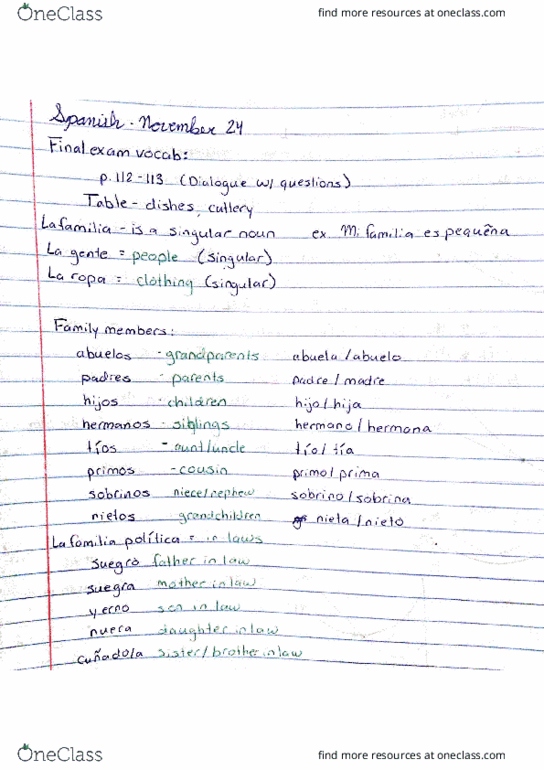 OneClass find more resources at oneclass.com
Spanish - November 24
Final exam vocab:
p. 112-113 (Dialogue w/ questions)
Table - dishes, cutlery
La familia - is a singular noun ex. Mi familia es pequeña
La gente = people (singular)
La ropa = clothing (singular)
Family members:
abuelos - grandparents abuela/abuelo
padres - parents padre/madre
hijos - children hijo/hija
hermanos - siblings hermano/hermana
tíos - aunt/uncle tío/tía
primos - cousin primo/prima
sobrinos niece/nephew sobrino/sobrina
nietos grandchildren nieta/nieto
La familia política = in laws
suegro father in law
suegra mother in law
yerno son in law
nuera daughter in law
cuñado/a sister/brother in law
OneClass find more resources at oneclass.com